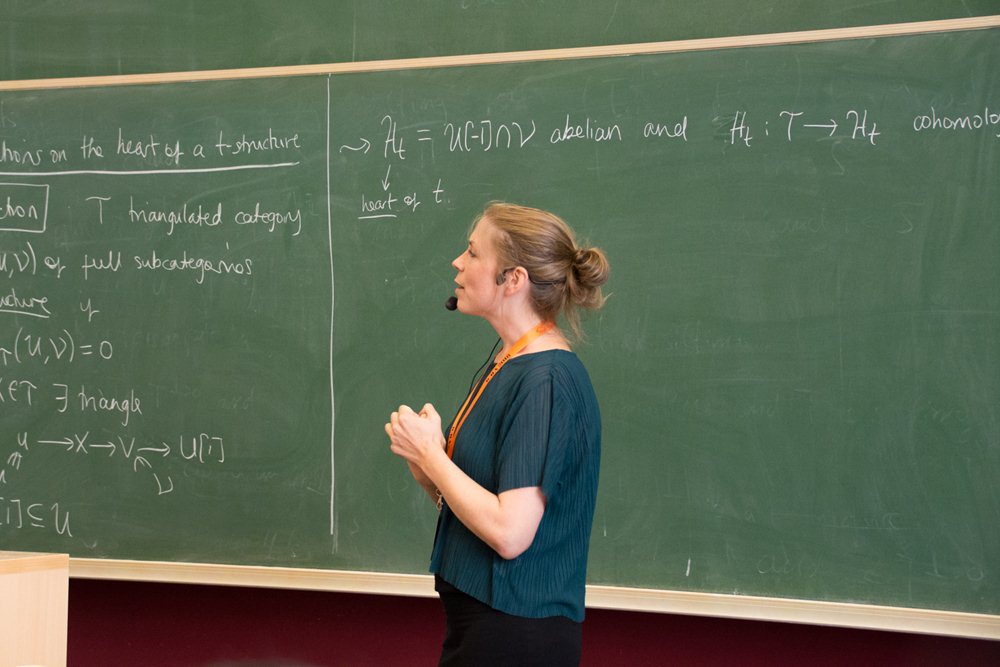 tions on the heart of a t-structure
tion T triangulated category
U, V) of full subcategories
ucture if
(U, V) = 0
X ∈ T ∃ triangle
U → X → V → U[1]
V
[1] ⊆ U
⇝ H_t = U[-1] ∩ V abelian and H_t : T → H_t cohomolo
↓
heart of t.